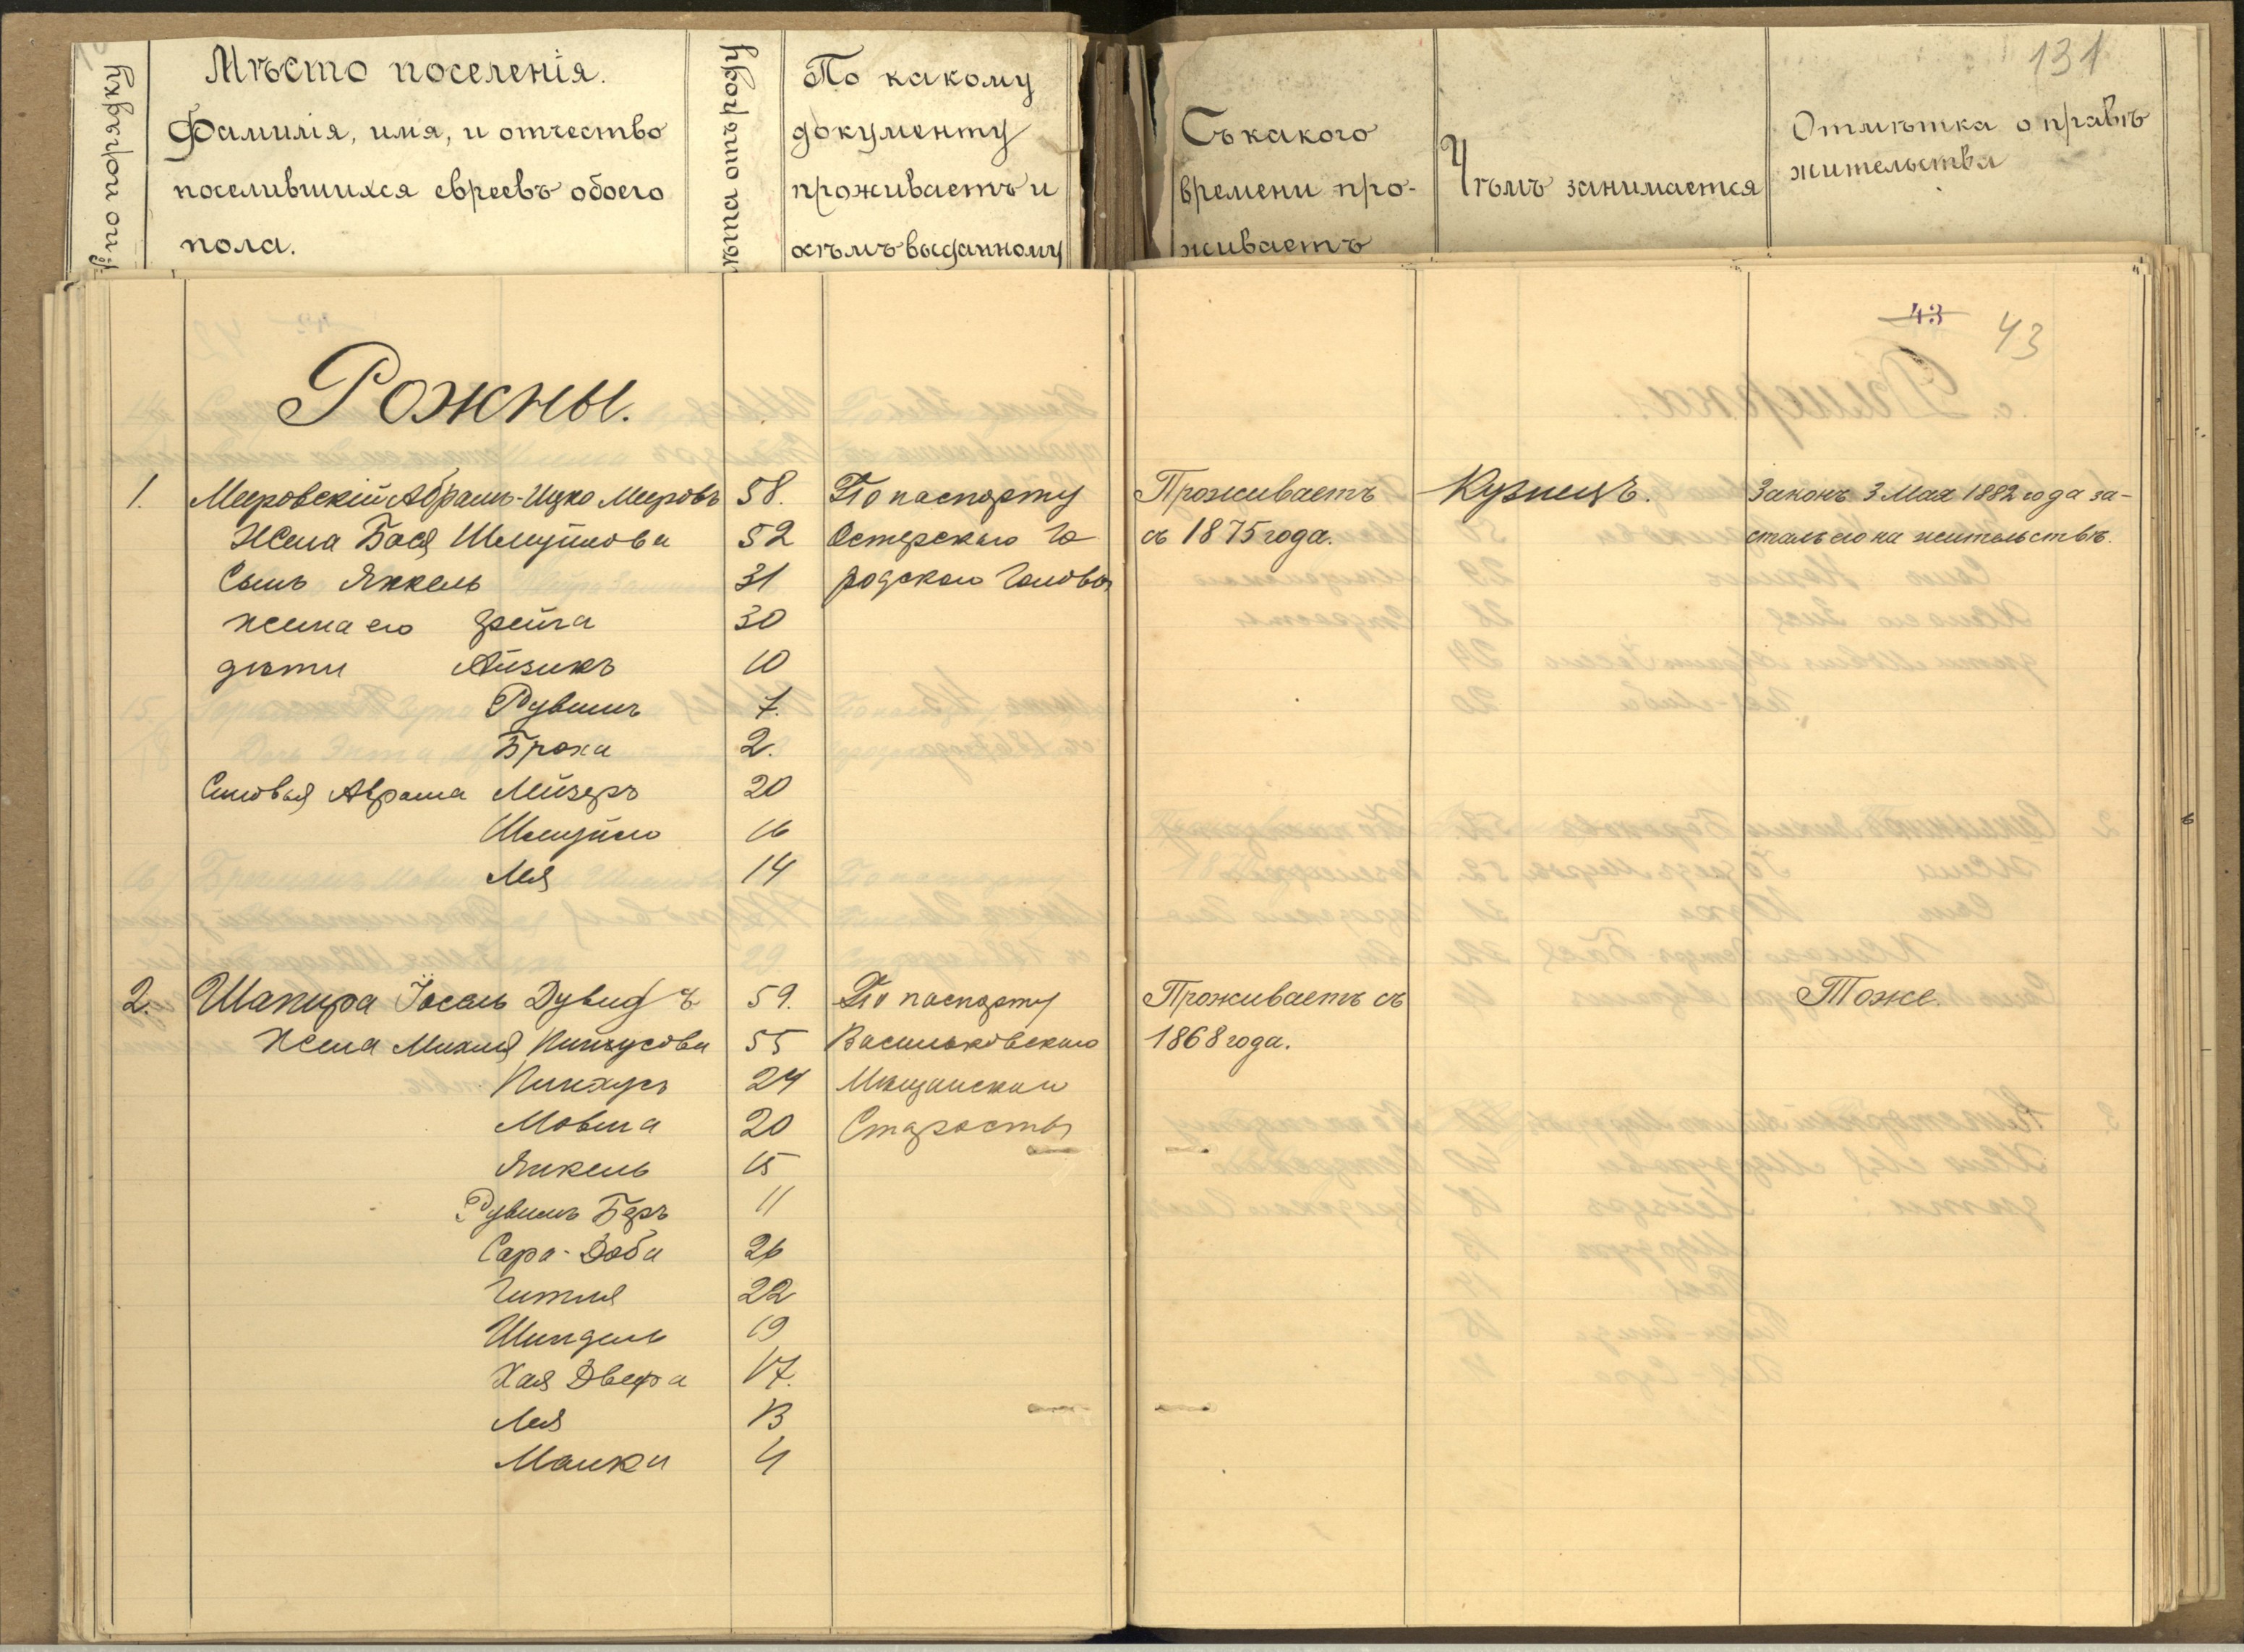 131
№ по порядку
Мѣсто поселенія.
Фамилія, имя, и отчество
поселившихся евреевъ обоего
пола.
лѣта отъ роду
По какому
документу
проживаетъ и
кѣмъ выданному
Съ какого
времени про-
живаетъ
Чѣмъ занимается
Отмѣтка о правѣ
жительства
43 43
Рожны.
1. Мееровскій Абрамъ-Ицко Мееровъ 58. По паспорту Проживаетъ Кузнецъ. Законъ 3 Мая 1882 года за-
Жена Бася Шмуйлова 52 Остерскаго Го съ 1875 года. сталъ его на жительствѣ.
Сынъ Янкель 31 родского Головы
жена его Фрейга 30
дѣти Айзикъ 10
Рувимъ 7.
Броха 2.
Сыновья Абрама Лейзеръ 20
Шмуйло 16
Лея 14
2. Шапира Іосель Дувидъ 59. По паспорту Проживаетъ съ Тоже.
Жена Михля Пинхусова 55 Васильковскаго 1868 года.
Пинхусъ 24 Мѣщанскаго
Мовша 20 Старосты
Янкель 15
Рувимъ Беръ 11
Сара-Доба 26
Гитля 22
Шиндель 19
Хая Двейра 17.
Лея 13
Малка 4